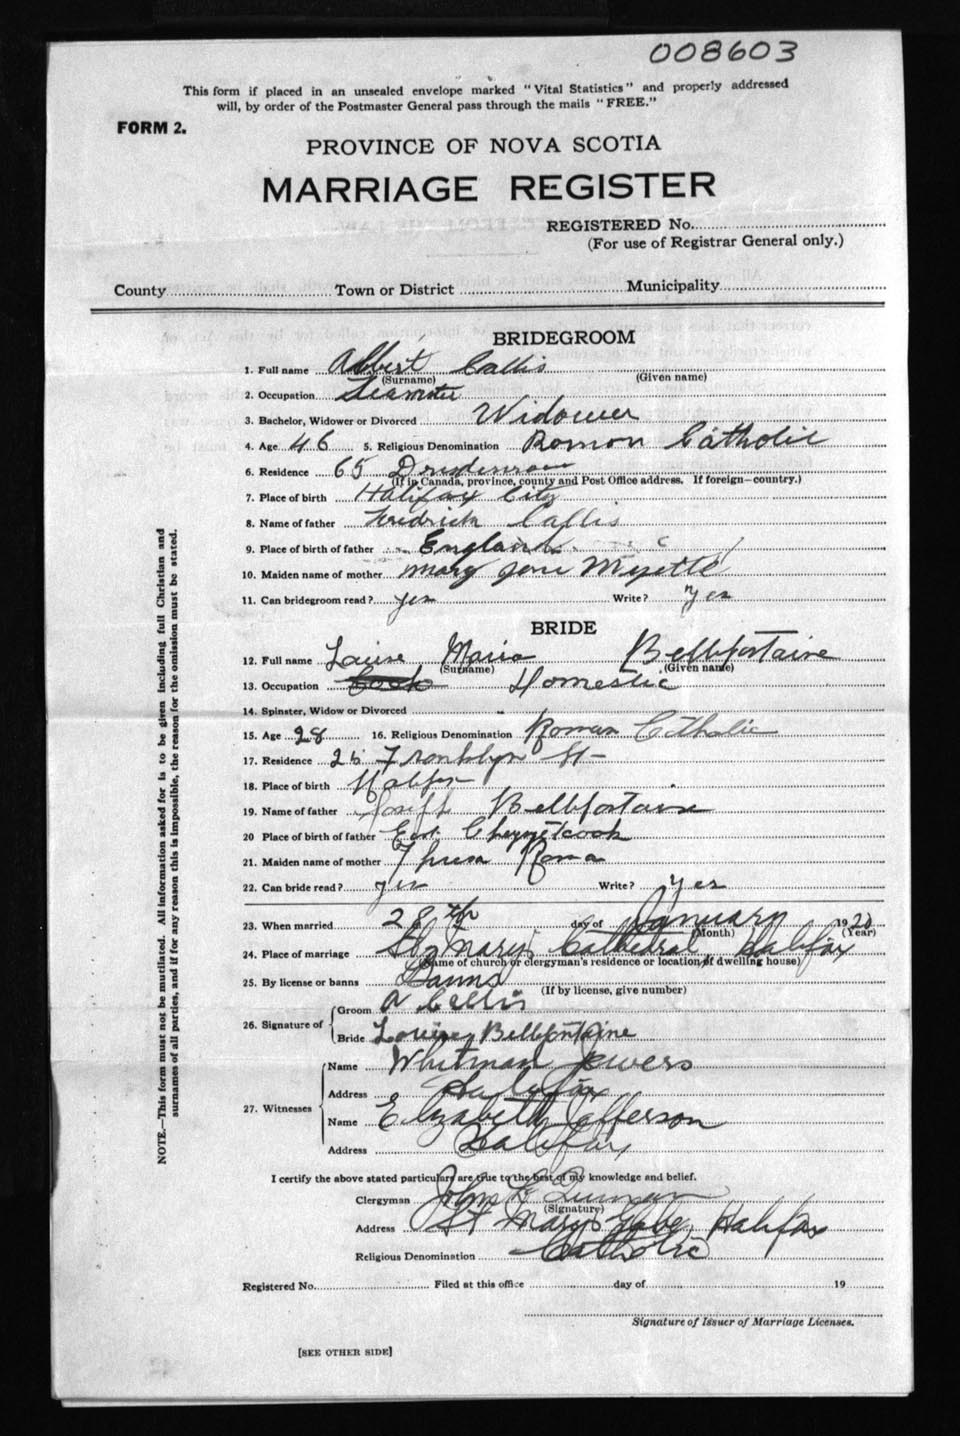 008603
This form if placed in an unsealed envelope marked "Vital Statistics" and properly addressed
will, by order of the Postmaster General pass through the mails "FREE."
FORM 2.
PROVINCE OF NOVA SCOTIA
MARRIAGE REGISTER
REGISTERED No.
(For use of Registrar General only.)
County Town or District Municipality
BRIDEGROOM
1. Full name Albert Callis
(Surname) (Given name)
2. Occupation Teamster
3. Bachelor, Widower or Divorced Widower
4. Age 46 5. Religious Denomination Roman Catholic
6. Residence 65
(If in Canada, province, county and Post Office address. If foreign—country.)
7. Place of birth Halifax City
8. Name of father Fredrick Callis
9. Place of birth of father England
10. Maiden name of mother Mary Jane Myette
11. Can bridegroom read? yes Write? yes
BRIDE
12. Full name Louise Maria Bellefontaine
(Surname) (Given name)
13. Occupation Cook Domestic
14. Spinster, Widow or Divorced
15. Age 28 16. Religious Denomination Roman Catholic
17. Residence 26 Franklyn St
18. Place of birth Halifax
19. Name of father Joseph Bellefontaine
20 Place of birth of father East Chezzetcook
21. Maiden name of mother Roma
22. Can bride read? yes Write? yes
23. When married 28th day of January 1920
(Month) (Year)
24. Place of marriage St Mary's Cathedral Halifax
(Name of church or clergyman's residence or location of dwelling house)
25. By license or banns Banns
(If by license, give number)
26. Signature of Groom A Callis
Bride Louise Bellefontaine
27. Witnesses Name Whitman Jewers
Address Halifax
Name Elizabeth Jefferson
Address Halifax
I certify the above stated particulars are true to the best of my knowledge and belief.
Clergyman John L Quinan
(Signature)
Address St Mary's Glebe, Halifax
Religious Denomination Catholic
Registered No. Filed at this office day of 19
Signature of Issuer of Marriage Licenses.
[SEE OTHER SIDE]
NOTE.—This form must not be mutilated. All information asked for is to be given including full Christian and
surnames of all parties, and if for any reason this is impossible, the reason for the omission must be stated.